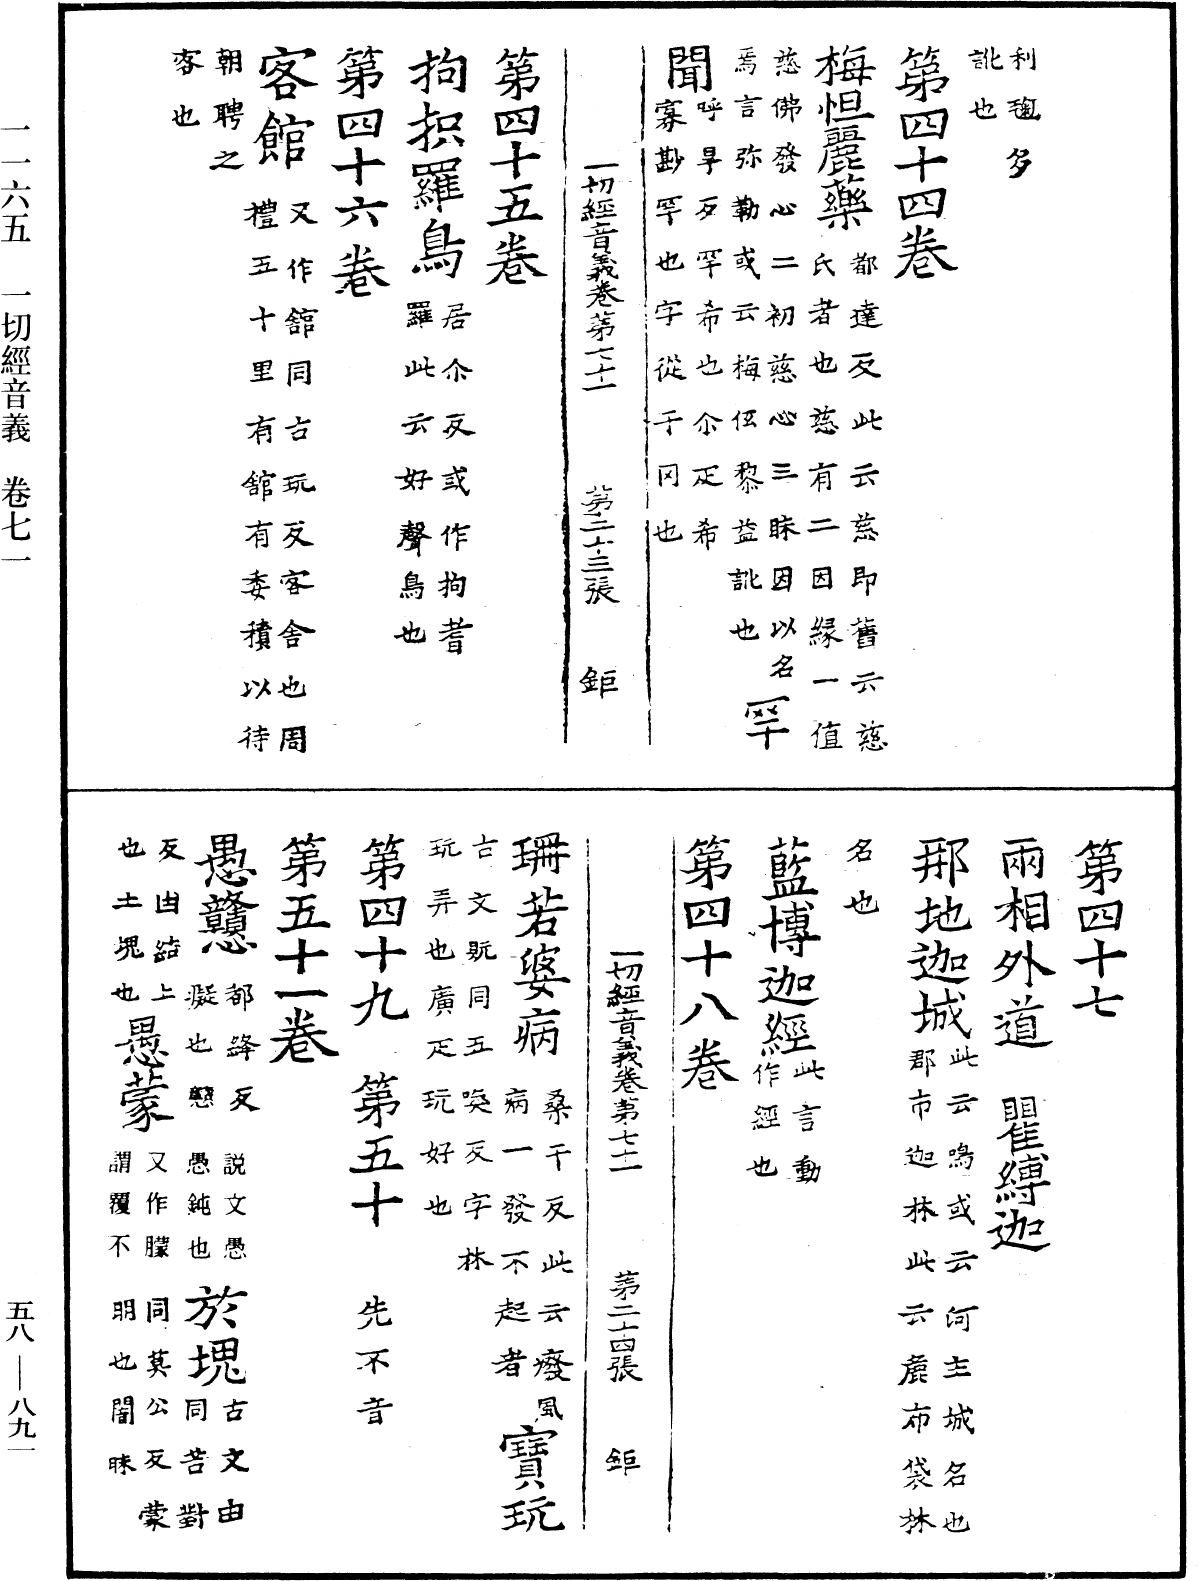 利毱多
訛也
第四十四卷
梅怛麗藥都達反此云慈即舊云慈
氏者也慈有二因緣一值
慈佛發心二初慈心三昧因以名
焉言弥勒或云梅低黎益訛也罕
聞呼旱反罕希也尒疋希
寡尠罕也字從干冈也
一切經音義卷第七十一 第二十三張 鉅
第四十五卷
拘枳羅鳥居尒反或作拘耆
羅此云好聲鳥也
第四十六卷
客館又作舘同古玩反客舍也周
禮五十里有舘有委積以待
朝聘之
客也
第四十七
兩相外道 瞿縛迦
那地迦城此云鳴或云河主城名也
郡市迦林此云鹿布袋林
名也
藍博迦經此言動
作經也
第四十八卷
一切經音義卷第七十一 第二十四張 鉅
珊若婆病桑干反此云癈風
病一發不起者寶玩
古文貦同五喚反字林
玩弄也廣疋玩好也
第四十九 第五十 先不音
第五十一卷
愚戇都絳反說文愚
癡也戇愚鈍也於塊古文由
同苦對
反由結上
也土塊也愚蒙又作朦同莫公反蒙
謂覆不明也闇昧
一一六五 一切經音義 卷七一
五八——八九一